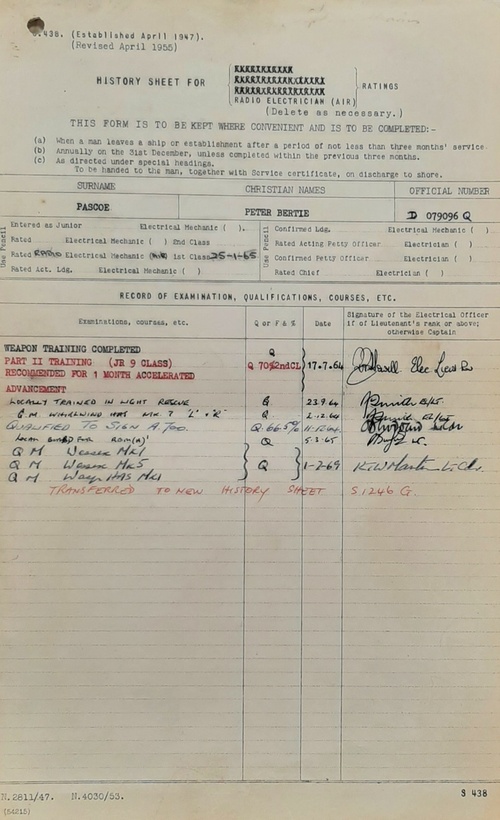 S.438. (Established April 1947).
(Revised April 1955)
HISTORY SHEET FOR
RADIO ELECTRICIAN (AIR)
RATINGS
(Delete as necessary.)
THIS FORM IS TO BE KEPT WHERE CONVENIENT AND IS TO BE COMPLETED:-
(a) When a man leaves a ship or establishment after a period of not less than three months' service.
(b) Annually on the 31st December, unless completed within the previous three months.
(c) As directed under special headings.
To be handed to the man, together with Service certificate, on discharge to shore.
SURNAME CHRISTIAN NAMES OFFICIAL NUMBER
PASCOE PETER BERTIE D 079096 Q
Use Pencil
Entered as Junior Electrical Mechanic ( ).
Rated Electrical Mechanic ( ) 2nd Class
Rated RADIO Electrical Mechanic (AIR) 1st Class 25-1-65
Rated Act. Ldg. Electrical Mechanic ( )
Use Pencil
Confirmed Ldg. Electrical Mechanic ( )
Rated Acting Petty Officer Electrician ( )
Confirmed Petty Officer Electrician ( )
Rated Chief Electrician ( )
RECORD OF EXAMINATION, QUALIFICATIONS, COURSES, ETC.
Examinations, courses, etc. Q or F & % Date Signature of the Electrical Officer if of Lieutenant's rank or above; otherwise Captain
WEAPON TRAINING COMPLETED Q
PART II TRAINING (JR 9 CLASS) Q 70% 2ndCL 17.7.64
RECOMMENDED FOR 1 MONTH ACCELERATED
ADVANCEMENT
LOCALLY TRAINED IN LIGHT RESCUE Q 23.9.64
Q.M. WHIRLWIND HAS MK. 7 Q 2.12.64
QUALIFIED TO SIGN A.700. Q. 66.5%
LOCAL BOARD FOR Q 5.3.65
Q M Wessex Mk1
Q M Wessex Mk5 Q 1-2-69
Q M HAS Mk1
TRANSFERRED TO NEW HISTORY SHEET S.1246 G.
N.2811/47. N.4030/53. S 438
(54215)